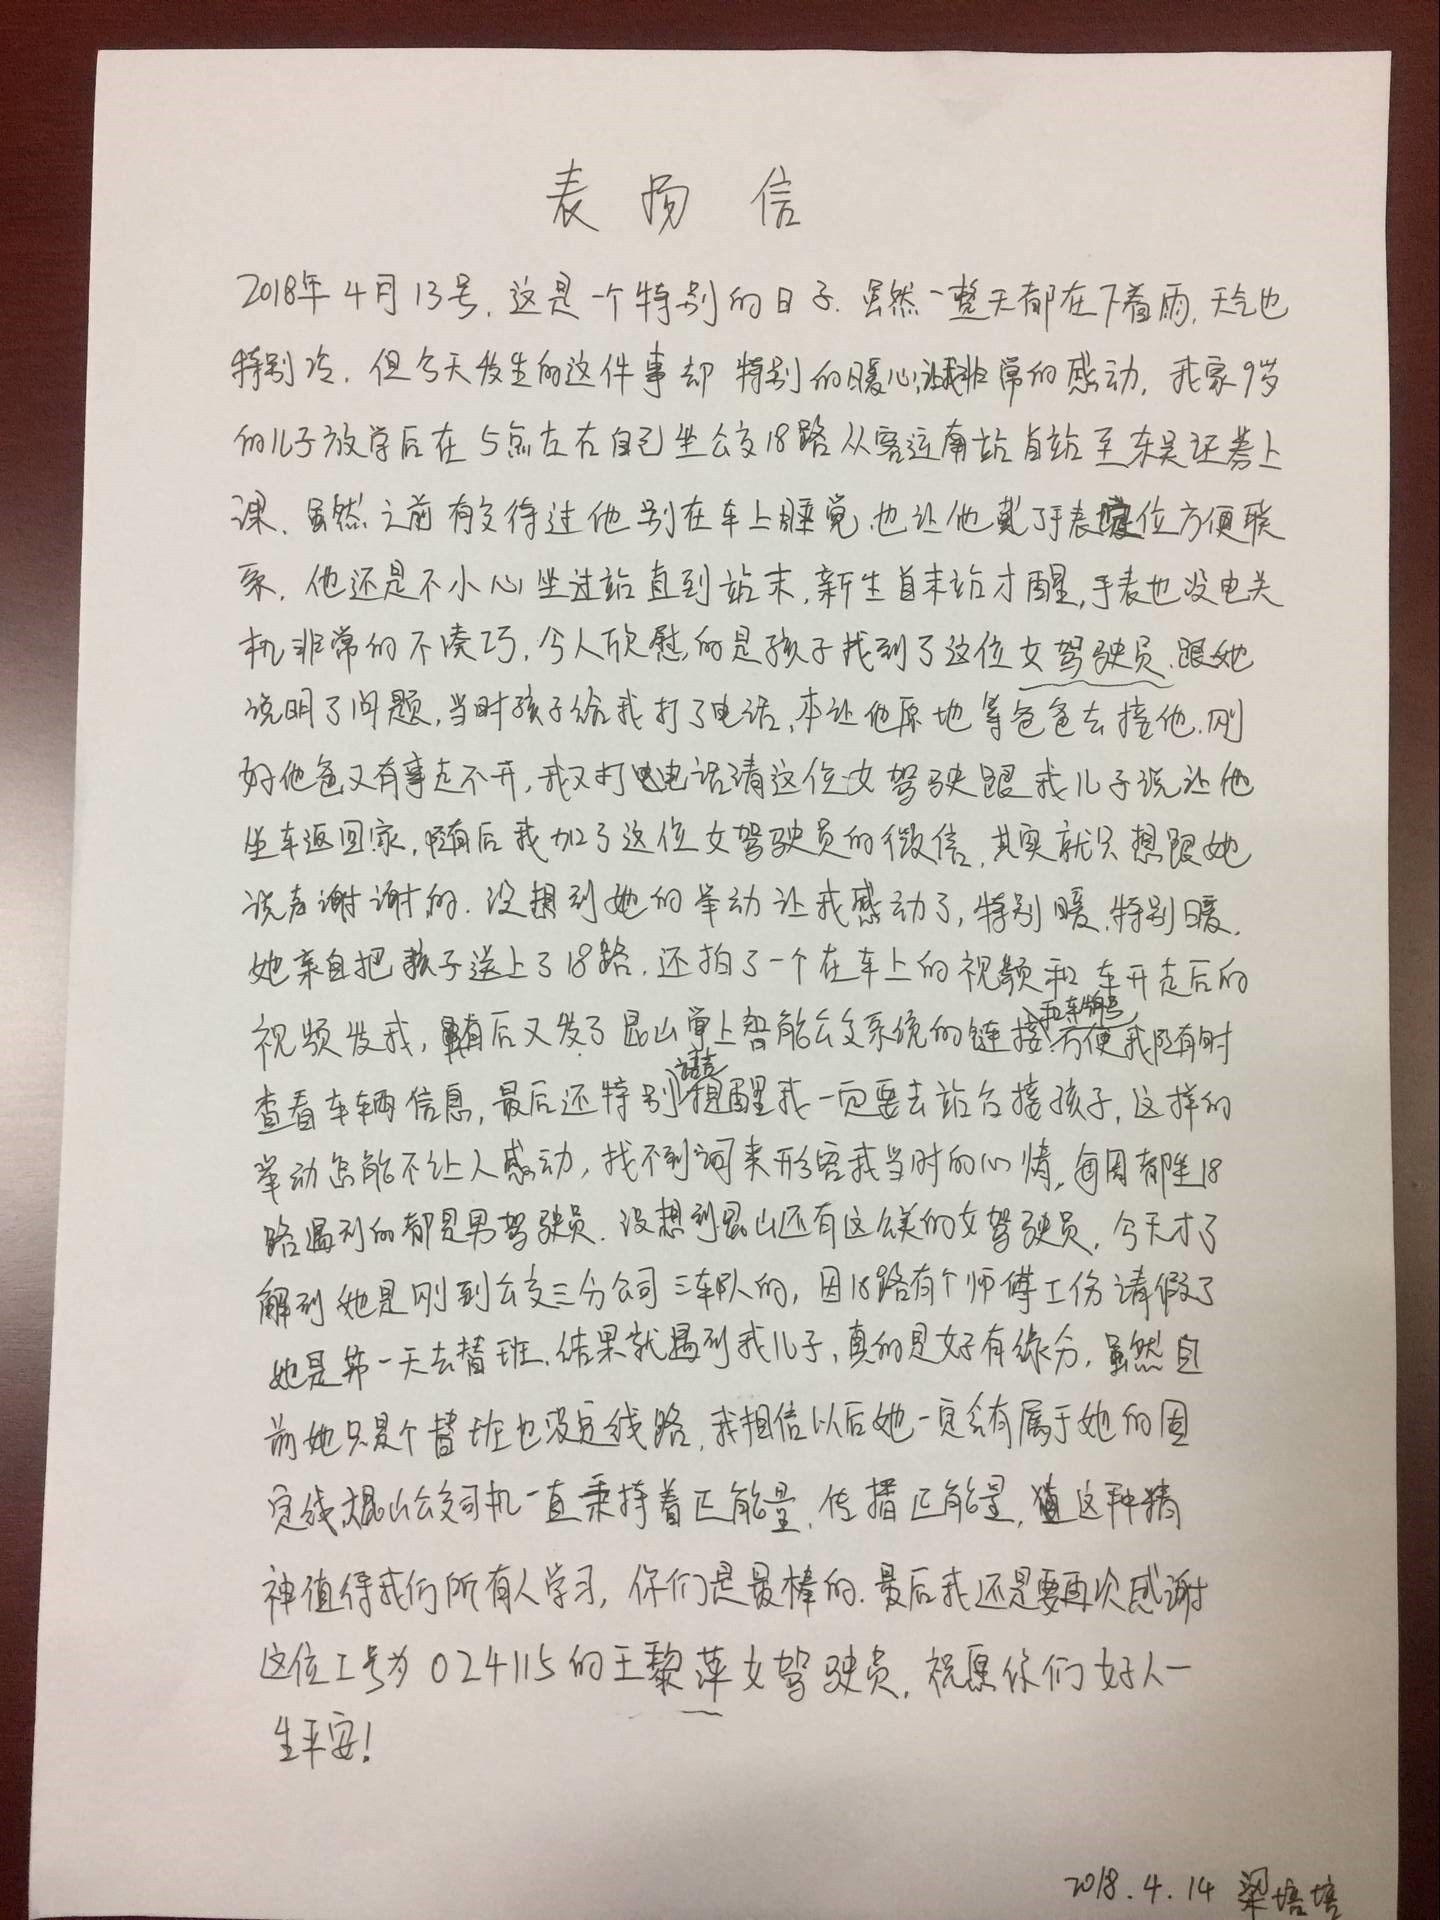 表扬信
2018年4月13号,这是一个特别的日子.虽然一整天都在下着雨,天气也
特别冷,但今天发生的这件事却特别的暖心,让我非常的感动,我家9岁
的儿子放学后在5点左右自己坐公交18路从客运南站首站至东吴证券上
课,虽然之前有交待过他别在车上睡觉,也让他戴了手表定位方便联
系,他还是不小心坐过站直到站末,新生首末站才醒,手表也没电关
机非常的不凑巧,令人欣慰的是孩子找到了这位女驾驶员,跟她
说明了问题,当时孩子给我打了电话,本让他原地等爸爸去接他,刚
好他爸又有事走不开,我又打电话请这位女驾驶跟我儿子说让他
坐车返回家,随后我加了这位女驾驶员的微信,其实就只想跟她
说声谢谢的.没想到她的举动让我感动了,特别暖,特别暖,
她亲自把孩子送上了18路.还拍了一个在车上的视频和车开走后的
视频发我,随后又发了昆山掌上智能公交系统的链接和车牌号方便我随时
查看车辆信息,最后还特别语音提醒我一定要去站台接孩子,这样的
举动怎能不让人感动,找不到词来形容我当时的心情,每周都坐18
路遇到的都是男驾驶员.没想到昆山还有这么美的女驾驶员,今天才了
解到她是刚到公交三分公司三车队的,因18路有个师傅工伤请假了
她是第一天去替班,结果就遇到我儿子,真的是好有缘分,虽然目
前她只是个替班也没定线路,我相信以后她一定会有属于她的固
定线,昆山公交司机一直秉持着正能量,传播正能量,这种精
神值得我们所有人学习,你们是最棒的.最后我还是要再次感谢
这位工号为024115的王黎萍女驾驶员,祝愿你们好人一
生平安!
2018.4.14 梁培培